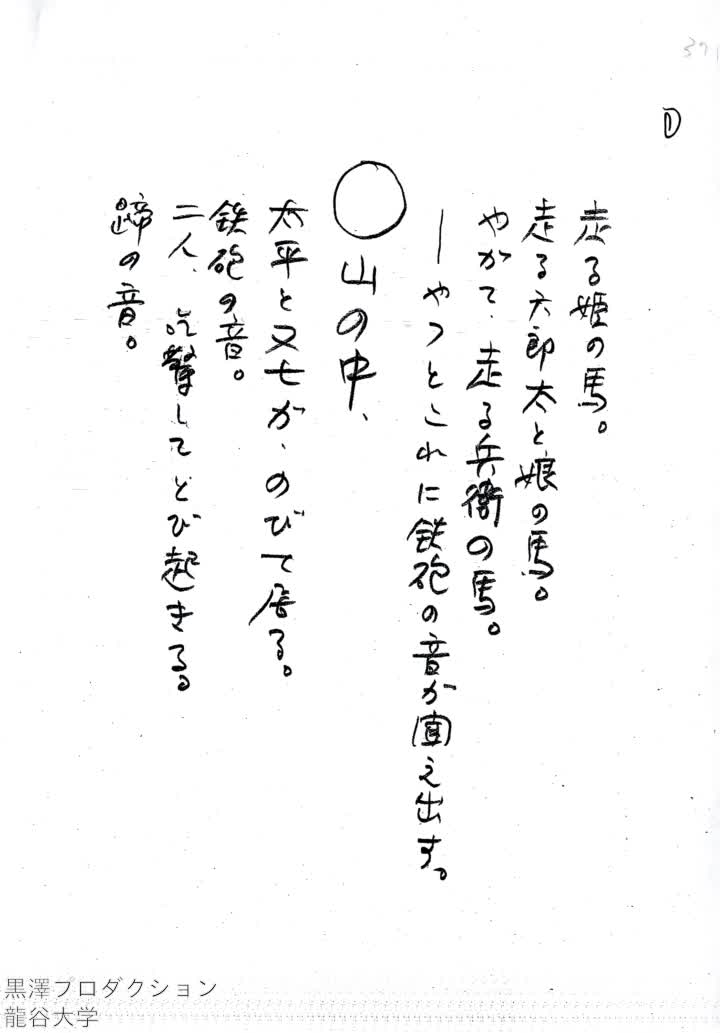 ①
走る姫の馬。
走る六郎太と娘の馬。
やがて、走る兵衛の馬。
―やっとこれに鉄砲の音が聞え出す。
◯山の中、
太平と又七が、のびて居る。
鉄砲の音。
二人、吃驚してとび起きる。
蹄の音。
黒澤プロダクション
龍谷大学